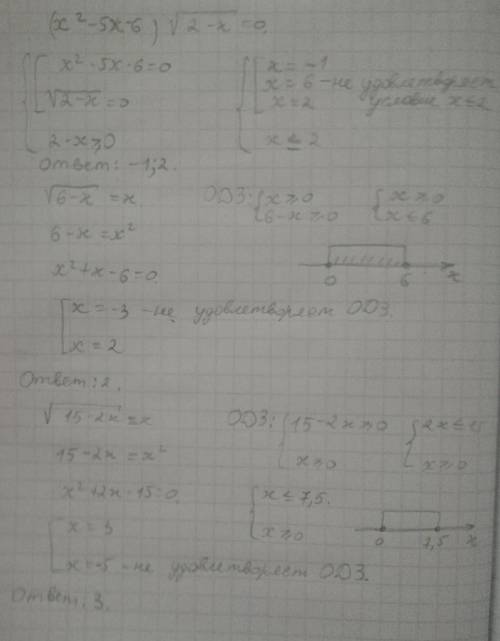 (x²-5x-6)√2-x=0.
x²-5x-6=0 x=-1
√2-x=0 x=6-не удовлетворяет
x=2 условия x≤2
2-x≥0 x≤2
Ответ: -1; 2.
√6-x=x. ОДЗ: x≥0 x≥0
6-x≥0 x≤6
6-x=x²
x²+x-6=0.
0 6 x
x=-3-не удовлетворяет ОДЗ.
x=2
Ответ: 2.
√15-2x=x ОДЗ: 15-2x≥0 2x≤15
15-2x=x² x≥0 x≥0
x²+2x-15=0. x≤7,5.
x=3 x≥0 0 7,5 x
x=-5-не удовлетворяет ОДЗ.
Ответ: 3.